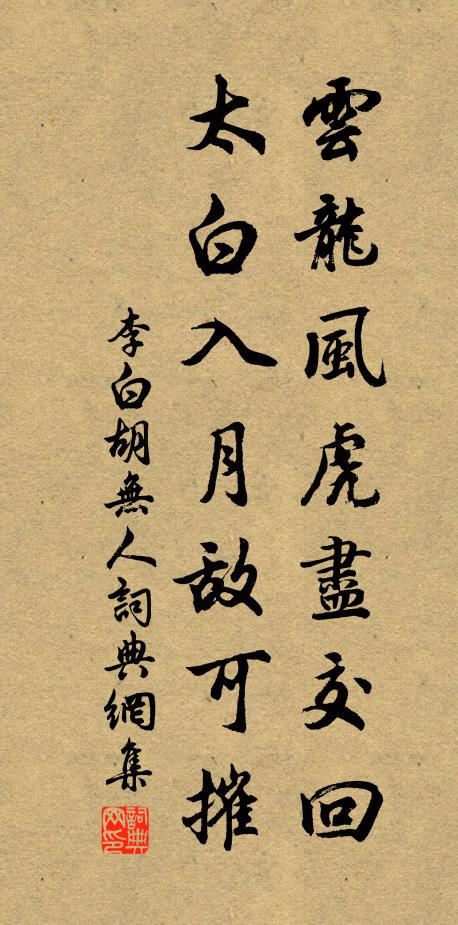 雲龍風虎盡交回
太白入月敌可摧
李白胡無人詞典網集
詞典网印